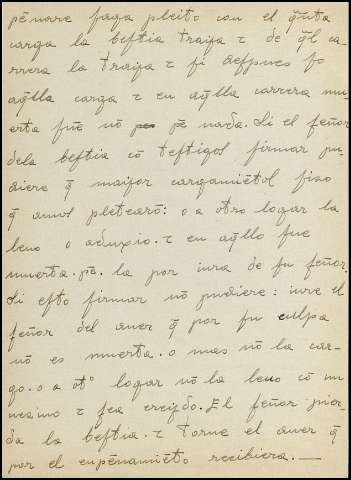 pēnare faga pleito con el q̄ nta
carga la beſtia trayа ⁊ de q̄l ca-
rrera la trayа ⁊ ſi deſpues ſo
aq̄lla carga ⁊ en aq̄lla carrera mu-
erta fue nō pē nada. Si el ſeñor
dela beſtia cō teſtigos firmar pu-
diere q̄ mayor cargamiēto l fizo
q̄ amos pleteārō: o a otro logar la
leuo o aduxio. ⁊ en aq̄llo fue
muerta. pē. la por iura de ſu ſeñor.
Si eſto firmar nō pudiere: iure el
ſeñor del auer q̄ por ſu culpa
nō es muerta. o mas nō la car-
go. o a otº logar nō la leuo cō un
uezino ⁊ ſea creydo. El ſeñor pier-
da la beſtia. ⁊ torne el auer q̄
por el enpēnamiēto recibiera.—